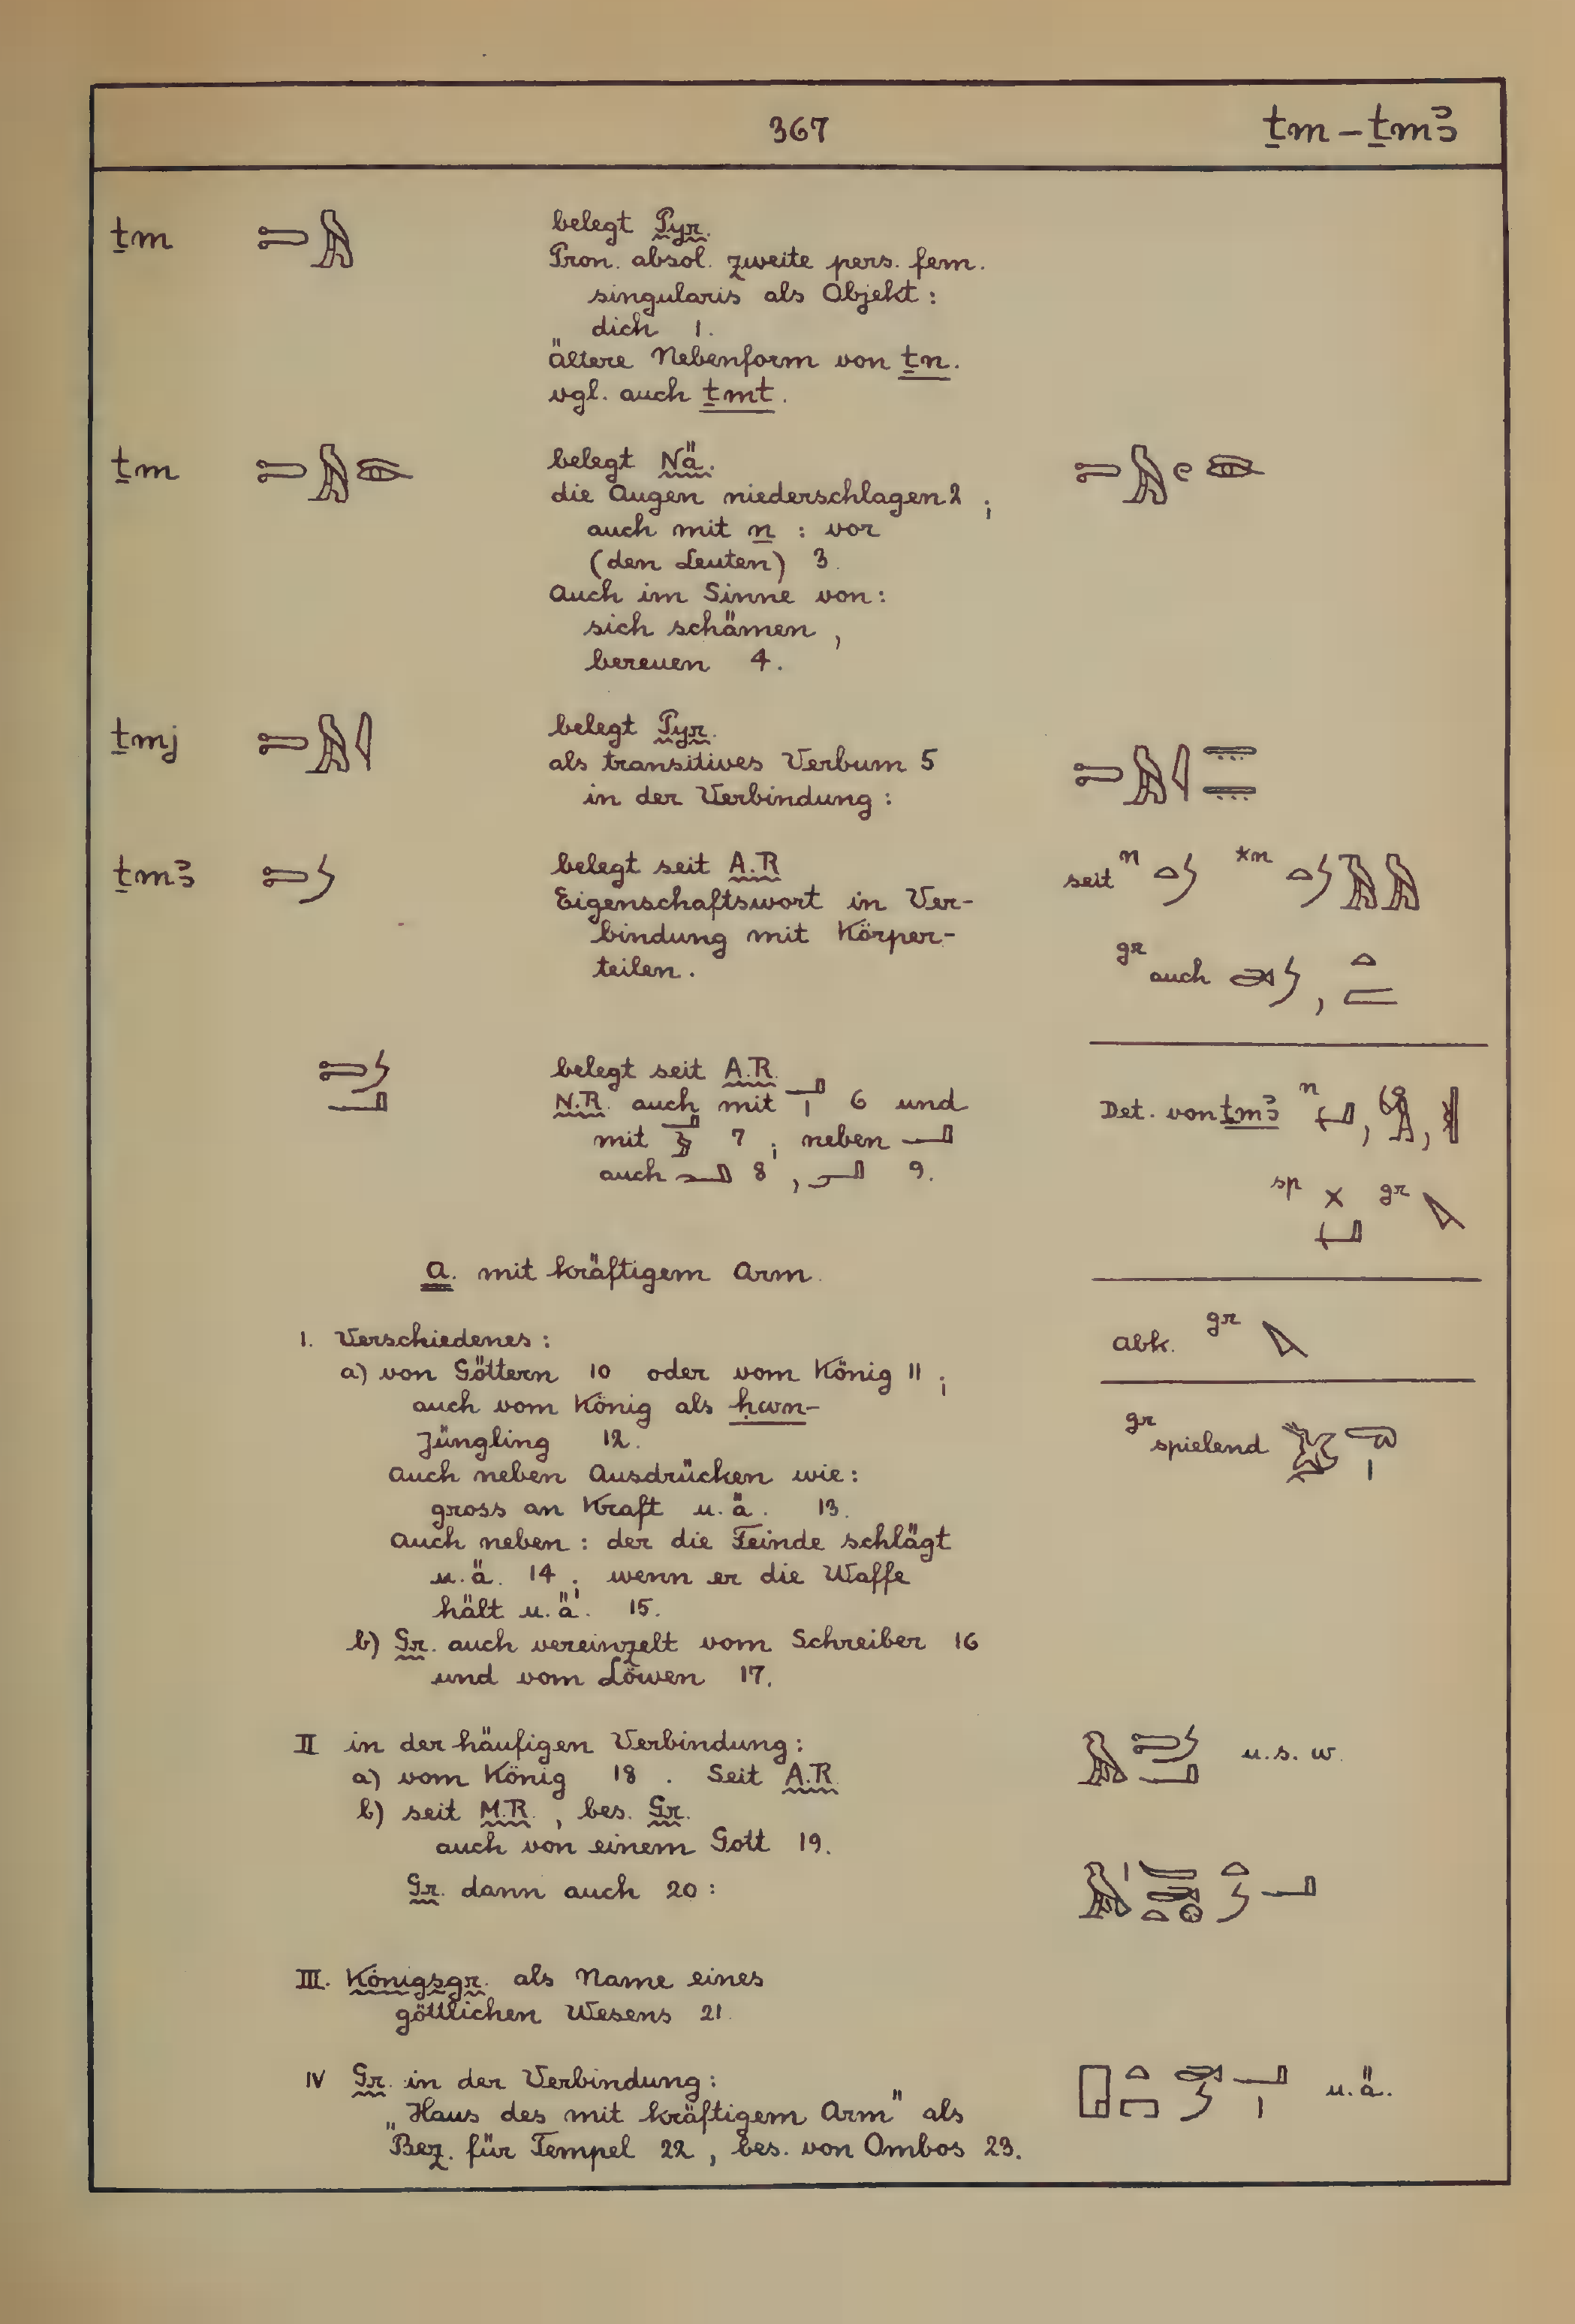 367
ṯm – ṯmꜣ
ṯm
belegt Pyr.
Pron. absol. zweite pers. fem.
singularis als Objekt:
dich 1.
ältere Nebenform von ṯn.
vgl. auch ṯmt.
ṯm
belegt Nä.
die Augen niederschlagen 2 ;
auch mit n : vor
(den Leuten) 3.
Auch im Sinne von:
sich schämen ,
bereuen 4.
ṯmj
belegt Pyr.
als transitives Verbum 5
in der Verbindung:
ṯmꜣ
belegt seit A.R
Eigenschaftswort in Ver-
bindung mit Körper-
teilen.
seit n *n
gr auch ,
belegt seit A.R.
N.R. auch mit 6 und
mit 7 ; neben
auch 8 , 9.
Det. von ṯmꜣ n , ,
sp gr
a. mit kräftigem Arm.
I. Verschiedenes:
a) von Göttern 10 oder vom König 11 ;
auch vom König als ḥwn-
Jüngling 12.
Auch neben Ausdrücken wie:
gross an Kraft u.ä. 13.
Auch neben: der die Feinde schlägt
u.ä. 14 ; wenn er die Waffe
hält u.ä. 15.
b) Gr. auch vereinzelt vom Schreiber 16
und vom Löwen 17.
Abk. gr
gr spielend
II in der häufigen Verbindung:
u.s.w.
a) vom König 18 . Seit A.R.
b) seit M.R. , bes. Gr.
auch von einem Gott 19.
Gr. dann auch 20 :
III. Königsgr. als Name eines
göttlichen Wesens 21.
IV Gr. in der Verbindung:
u.ä.
„Haus des mit kräftigem Arm" als
Bez. für Tempel 22 , bes. von Ombos 23.